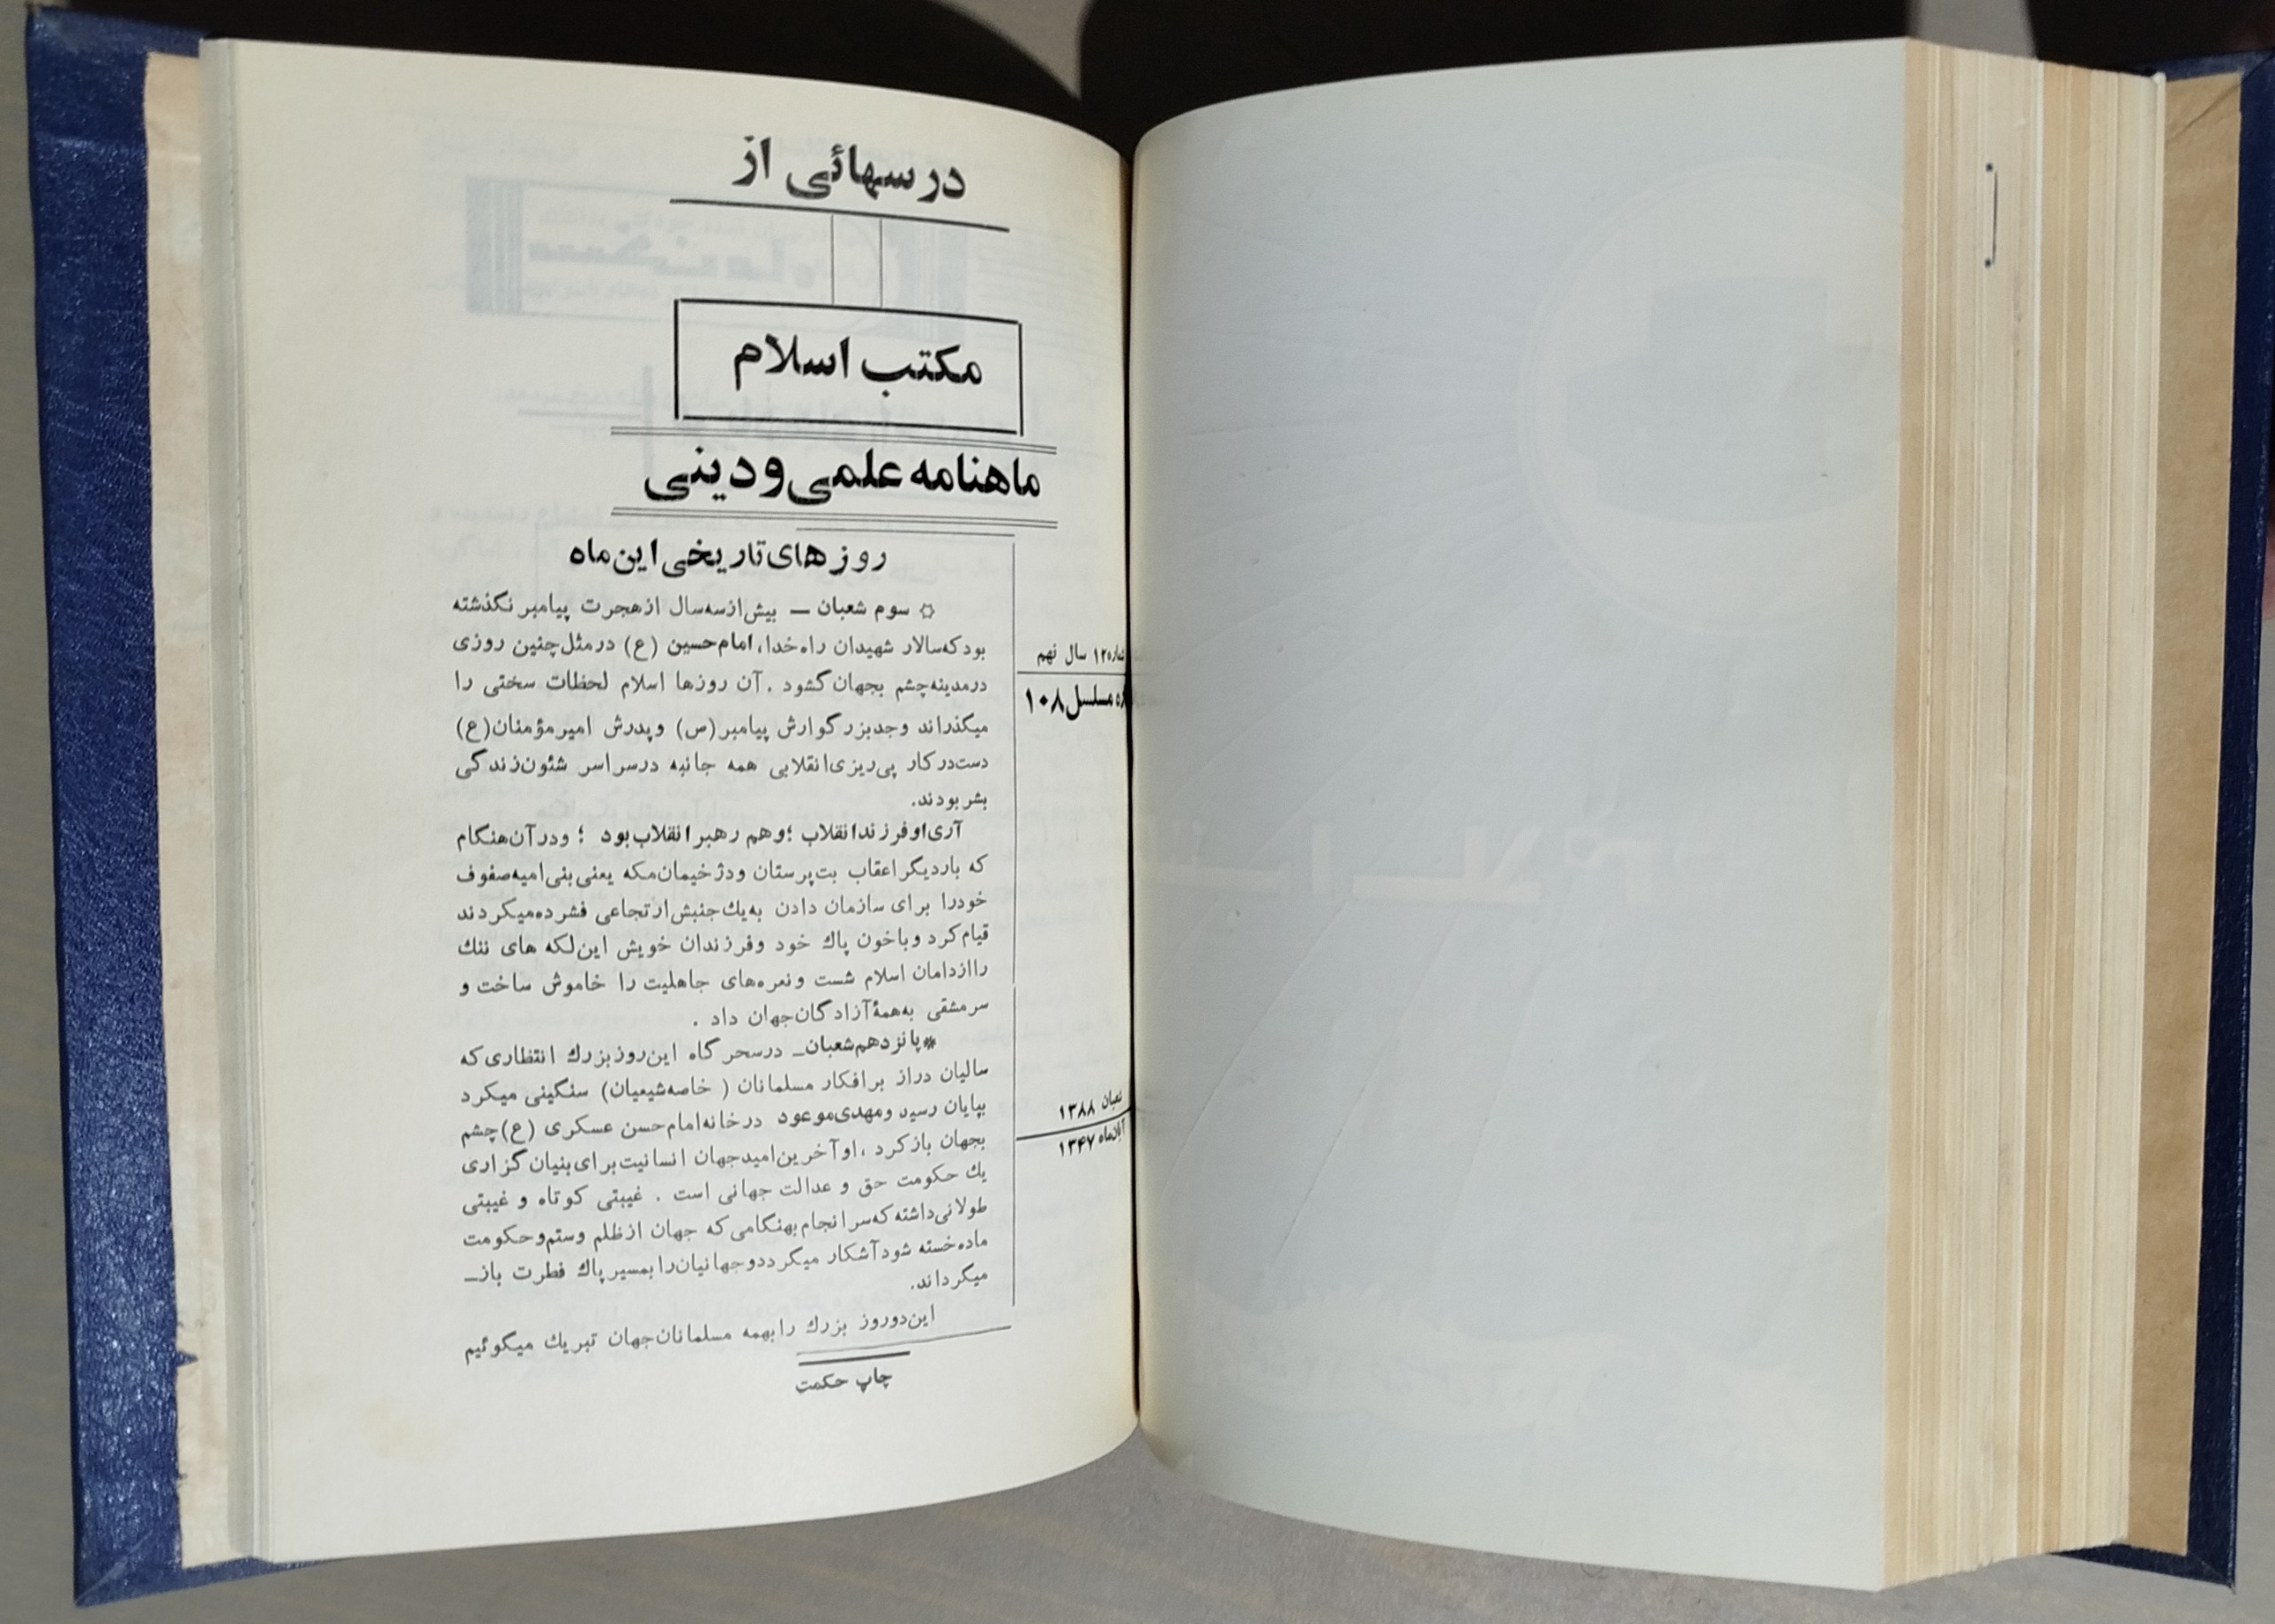 درسهائی از
مکتب اسلام
ماهنامه علمی و دینی
روزهای تاریخی این ماه
✡ سوم شعبان — بیش از سه سال از هجرت پیامبر نگذشته
بود که سالار شهیدان راه خدا، امام حسین (ع) در مثل چنین روزی
در مدینه چشم بجهان گشود . آن روزها اسلام لحظات سختی را
میگذراند وجد بزرگوارش پیامبر (ص) و پدرش امیر مؤمنان (ع)
دست در کار پی ریزی انقلابی همه جانبه در سراسر شئون زندگی
بشر بودند.
آری او فرزند انقلاب ؛ وهم رهبر انقلاب بود ؛ و در آن هنگام
که بار دیگر اعقاب بت پرستان و دژخیمان مکه یعنی بنی امیه صفوف
خود را برای سازمان دادن به یك جنبش ارتجاعی فشرده میکردند
قیام کرد و با خون پاك خود و فرزندان خویش این لکه های ننك
را از دامان اسلام شست و نعره های جاهلیت را خاموش ساخت و
سرمشقی به همهٔ آزادگان جهان داد .
* پانزدهم شعبان_ در سحرگاه این روز بزرك انتظاری که
سالیان دراز بر افکار مسلمانان ( خاصه شیعیان) سنگینی میکرد
بپایان رسید و مهدی موعود در خانه امام حسن عسکری (ع) چشم
بجهان باز کرد ، او آخرین امید جهان انسانیت برای بنیان گزاری
یك حکومت حق و عدالت جهانی است . غیبتی کوتاه و غیبتی
طولانی داشته که سرانجام بهنگامی که جهان از ظلم و ستم و حکومت
ماده خسته شود آشکار میگردد و جهانیان را بمسیر پاك فطرت باز_
میگرداند.
این دو روز بزرك را بهمه مسلمانان جهان تبریك میگوئیم
چاپ حکمت
شماره ۱۲ سال نهم
مسلسل ۱۰۸
شعبان ۱۳۸۸
آبان ماه ۱۳۴۷